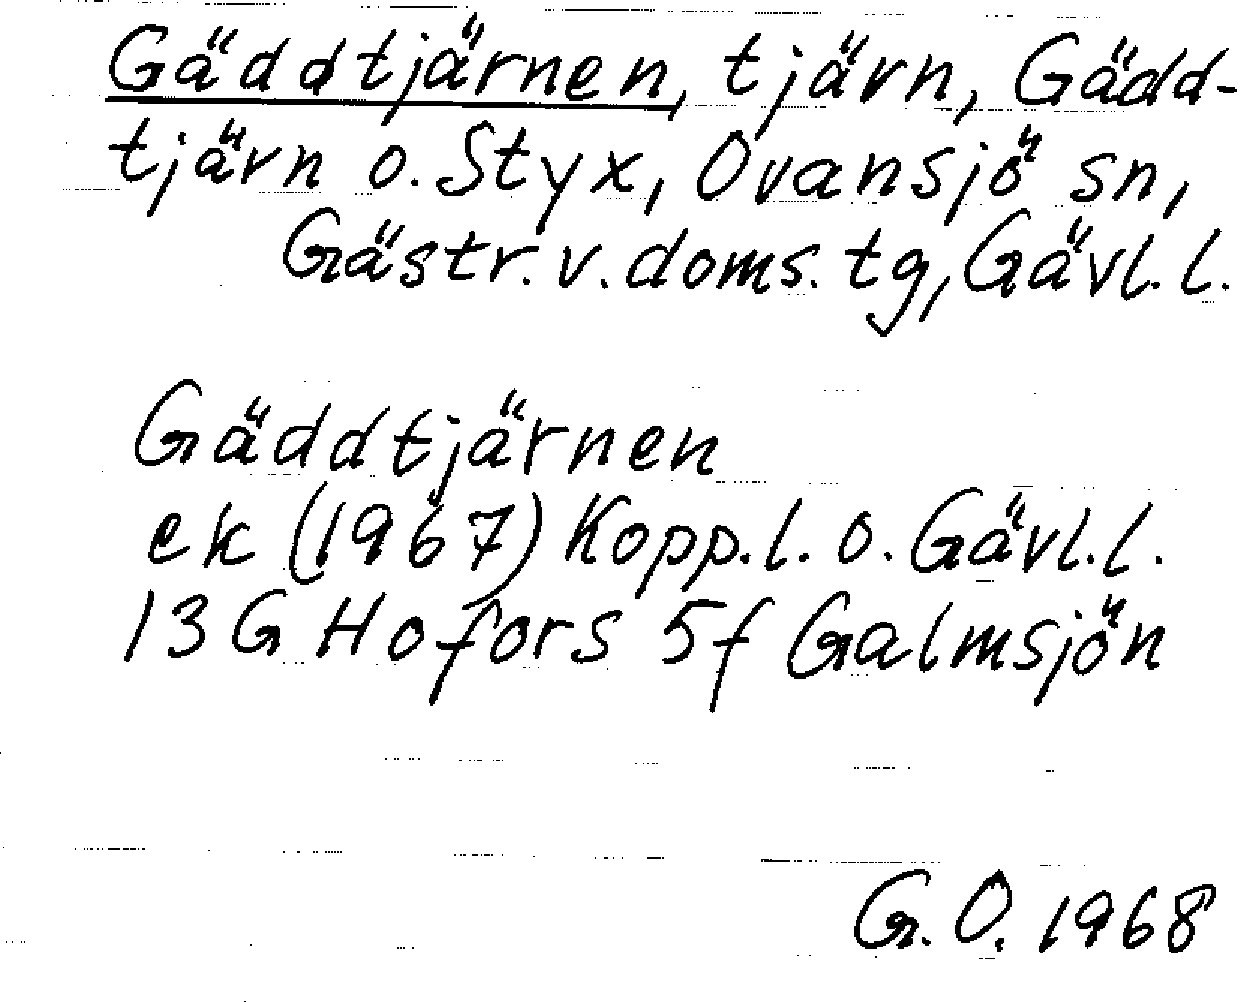 Gäddtjärnen, tjärn, Gädd-
tjärn o. Styx, Ovansjö sn,
Gästr. v. doms. tg, Gävl. l.
Gäddtjärnen
ek (1967) Kopp. l. o. Gävl. l.
13 G Hofors 5f Galmsjön
G. O. 1968